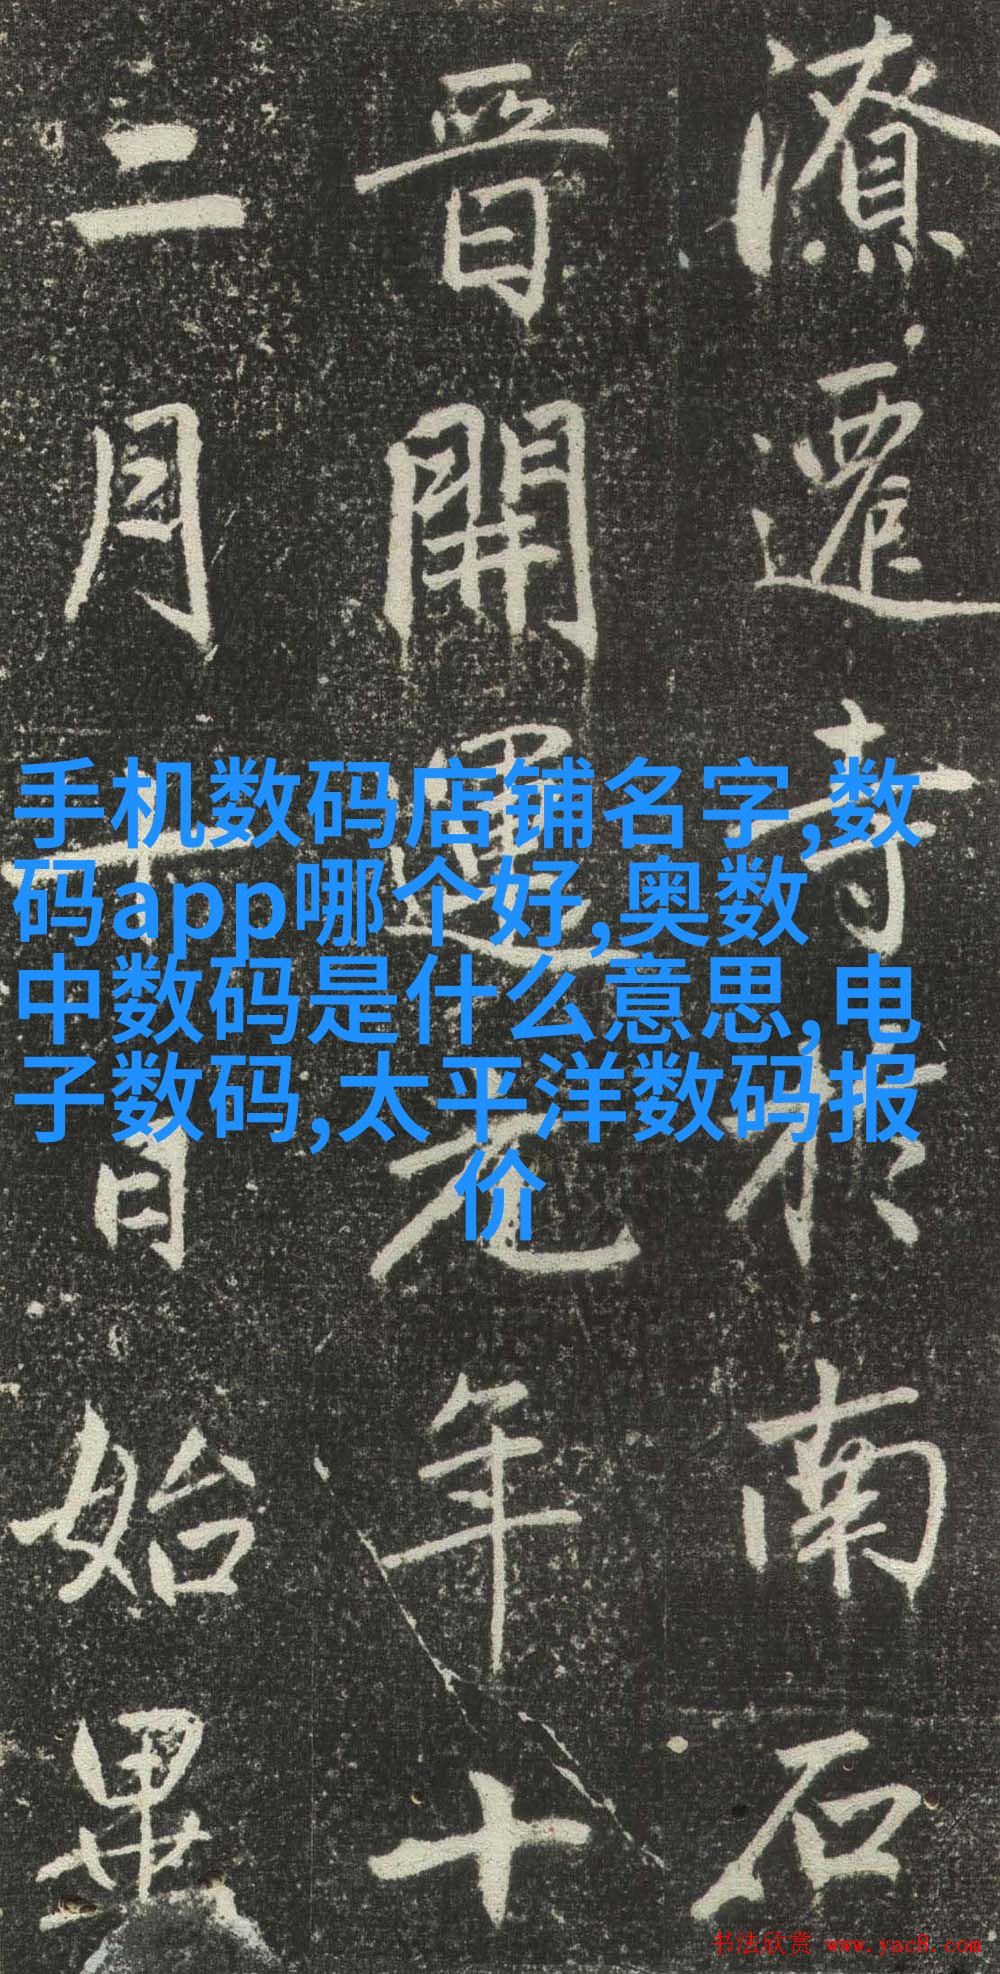 潦遷寺於南石
晋開運元年十
二月十日始畢
手机数码店铺名字,数
码app哪个好,奥数
中数码是什么意思,电
子数码,太平洋数码报
价
书法欣赏 www.yac8.com